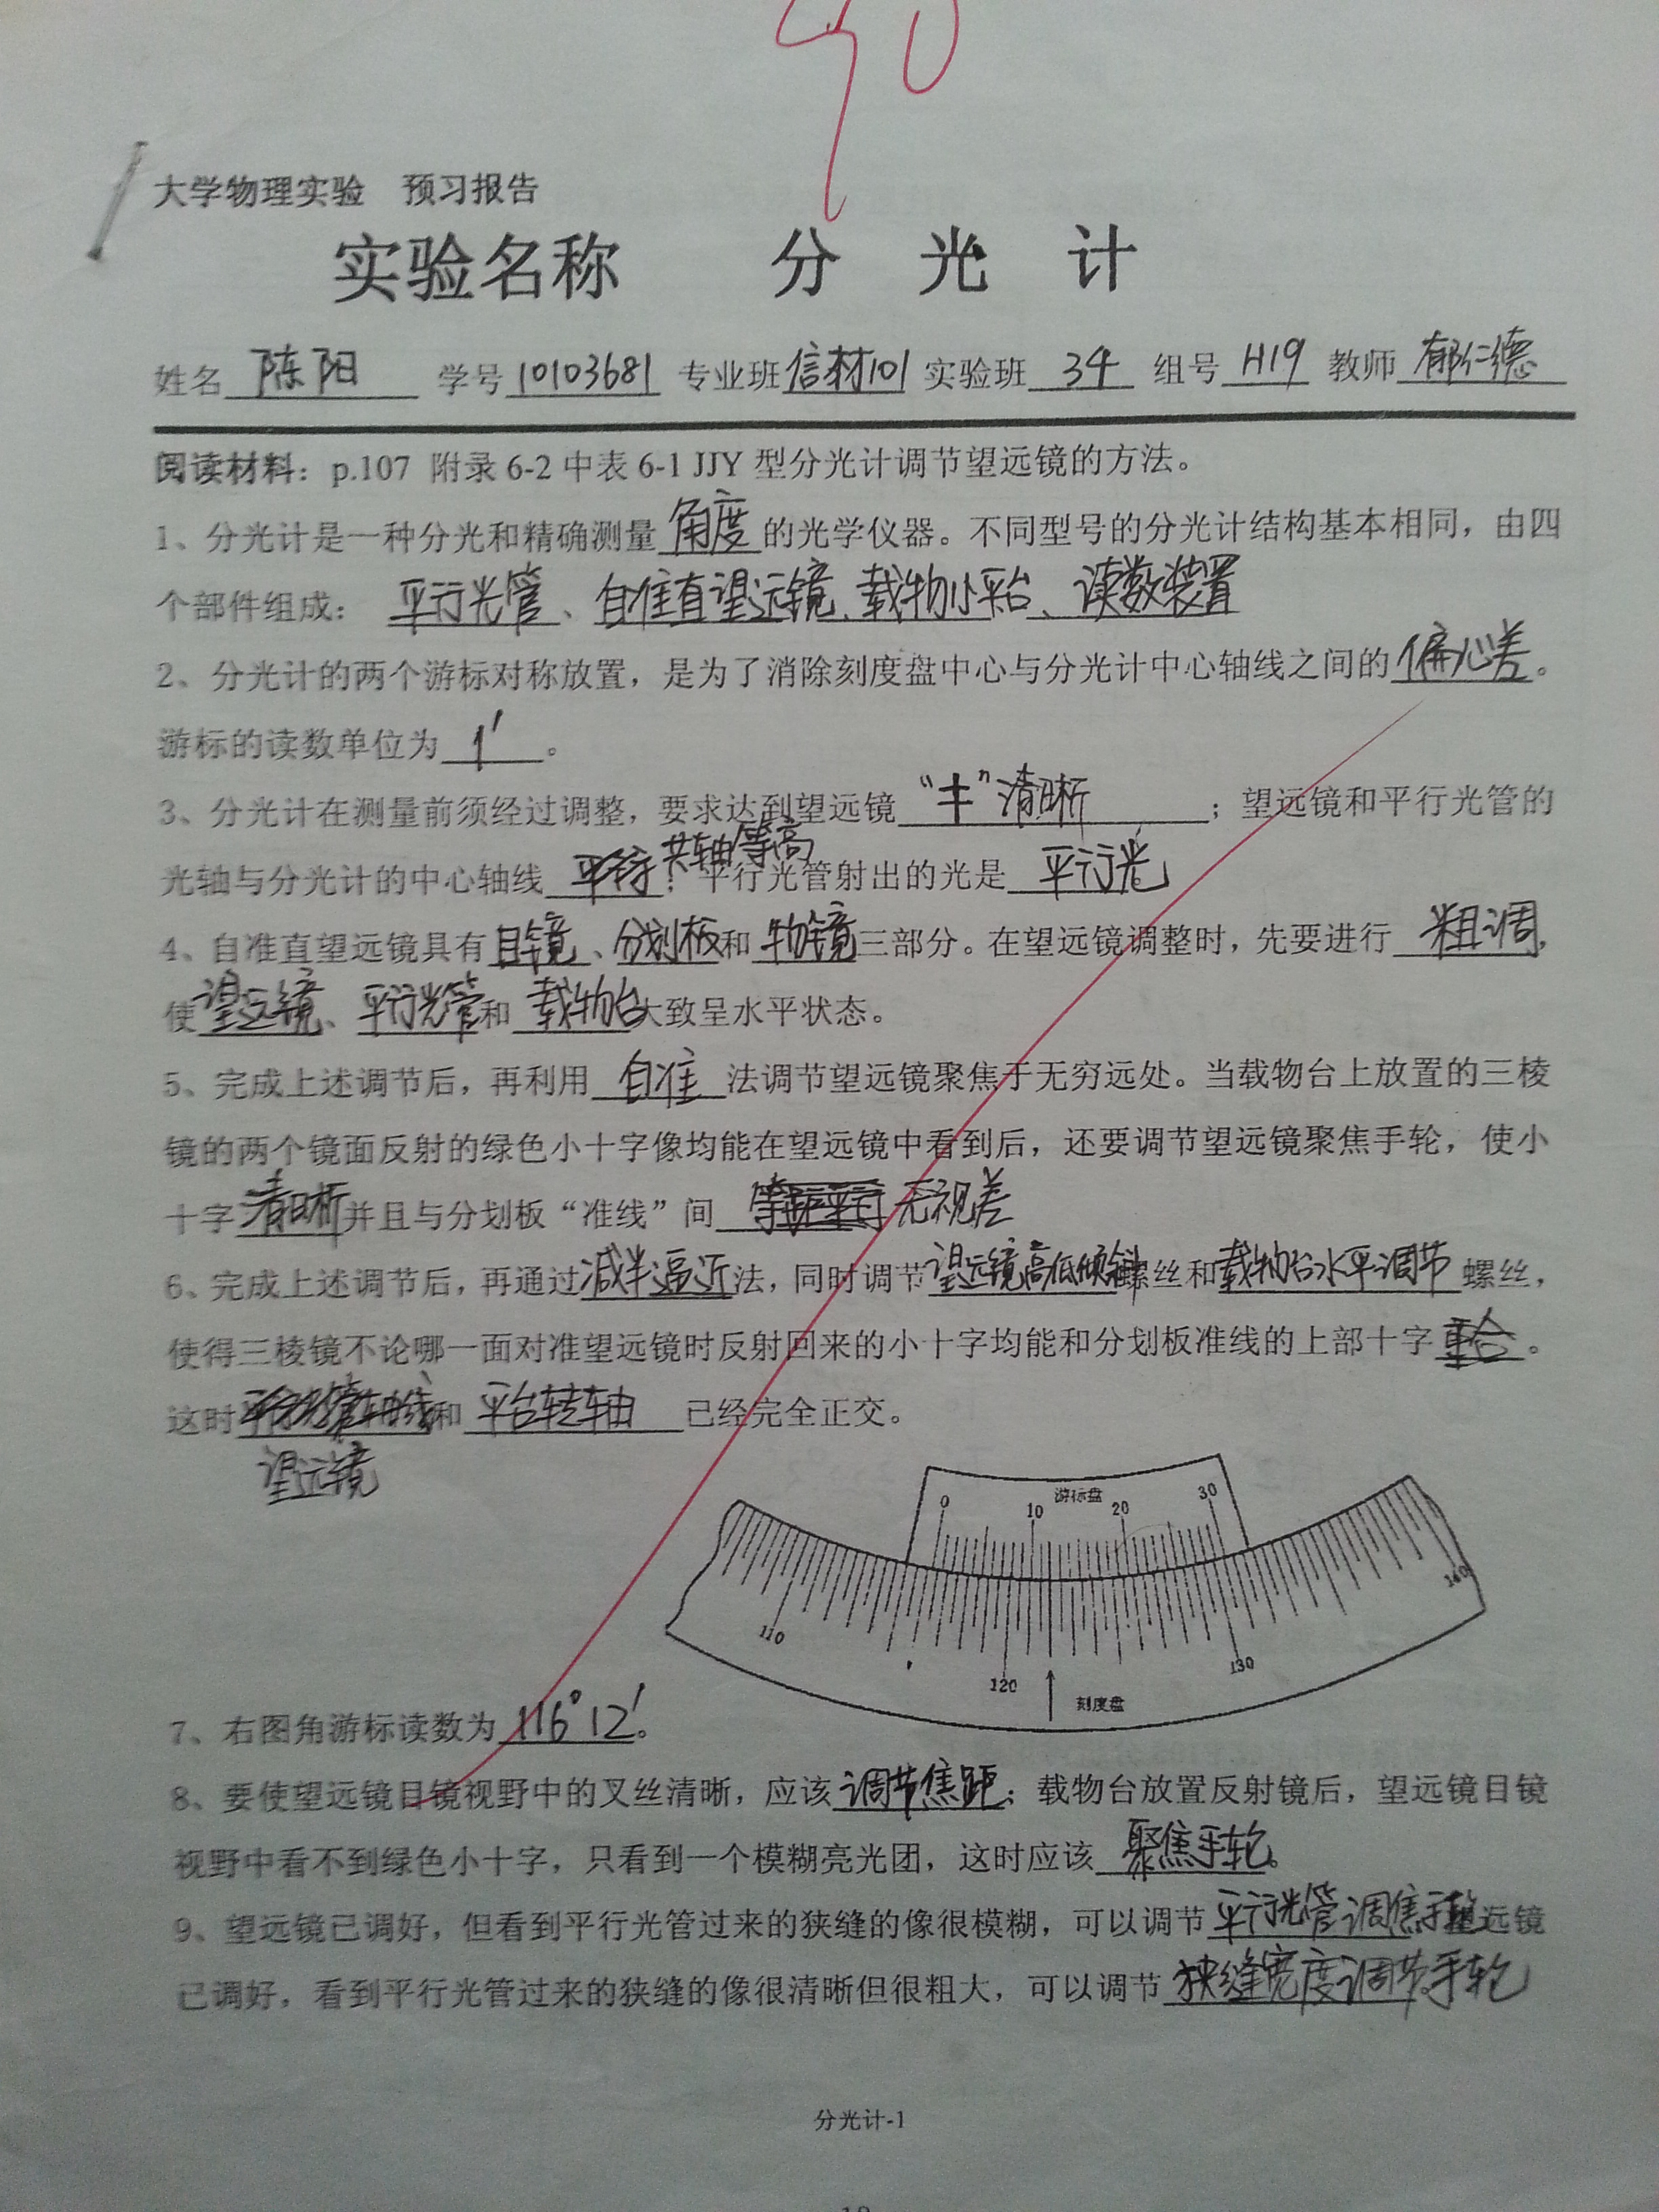 90
大学物理实验 预习报告
实验名称 分光计
姓名 陈阳 学号 10103681 专业班 信材101 实验班 34 组号 H19 教师 郁仁德
阅读材料：p.107 附录 6-2 中表 6-1 JJY 型分光计调节望远镜的方法。
1、分光计是一种分光和精确测量 角度 的光学仪器。不同型号的分光计结构基本相同，由四
个部件组成： 平行光管、自准直望远镜、载物小平台、读数装置
2、分光计的两个游标对称放置，是为了消除刻度盘中心与分光计中心轴线之间的 偏心差。
游标的读数单位为 1′。
3、分光计在测量前须经过调整，要求达到望远镜 “丰”清晰；望远镜和平行光管的
光轴与分光计的中心轴线 平行 共轴等高；平行光管射出的光是 平行光
4、自准直望远镜具有 目镜、分划板 和 物镜 三部分。在望远镜调整时，先要进行 粗调，
使 望远镜、平行光管 和 载物台 大致呈水平状态。
5、完成上述调节后，再利用 自准 法调节望远镜聚焦于无穷远处。当载物台上放置的三棱
镜的两个镜面反射的绿色小十字像均能在望远镜中看到后，还要调节望远镜聚焦手轮，使小
十字 清晰 并且与分划板“准线”间 无视差
6、完成上述调节后，再通过 减半逼近 法，同时调节 望远镜高低倾斜 螺丝和 载物台水平调节 螺丝，
使得三棱镜不论哪一面对准望远镜时反射回来的小十字均能和分划板准线的上部十字 重合。
这时 和 平台转轴 已经完全正交。
望远镜
游标盘
0 10 20 30
110 120 130 140
刻度盘
7、右图角游标读数为 116°12′。
8、要使望远镜目镜视野中的叉丝清晰，应该 调节焦距；载物台放置反射镜后，望远镜目镜
视野中看不到绿色小十字，只看到一个模糊亮光团，这时应该 聚焦手轮。
9、望远镜已调好，但看到平行光管过来的狭缝的像很模糊，可以调节 平行光管调焦手轮 望远镜
已调好，看到平行光管过来的狭缝的像很清晰但很粗大，可以调节 狭缝宽度调节手轮
分光计-1